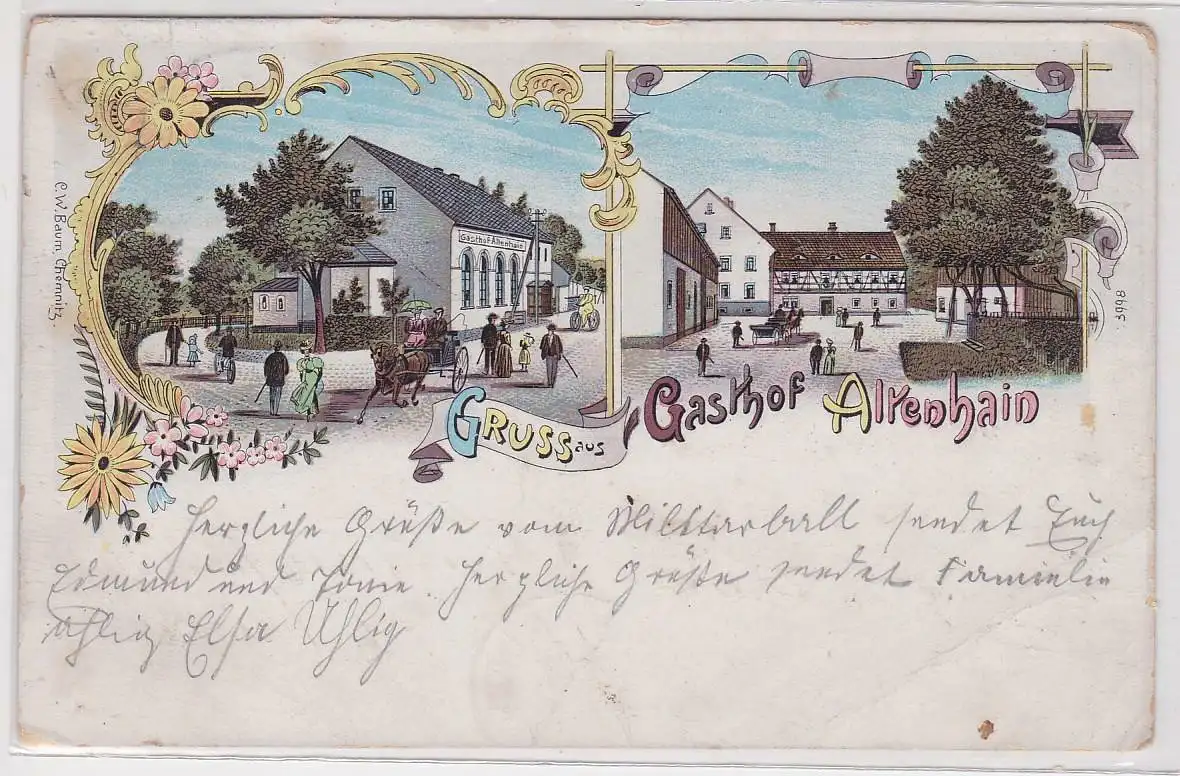 C. W. Baum, Chemnitz.
Gasthof Altenhain
GRUSS aus
Gasthof Altenhain
3798
Herzliche Grüße vom Militärball sendet Euch
Edmund und Tonie. Herzliche Grüße sendet Familie
Uhlig Elsa Uhlig